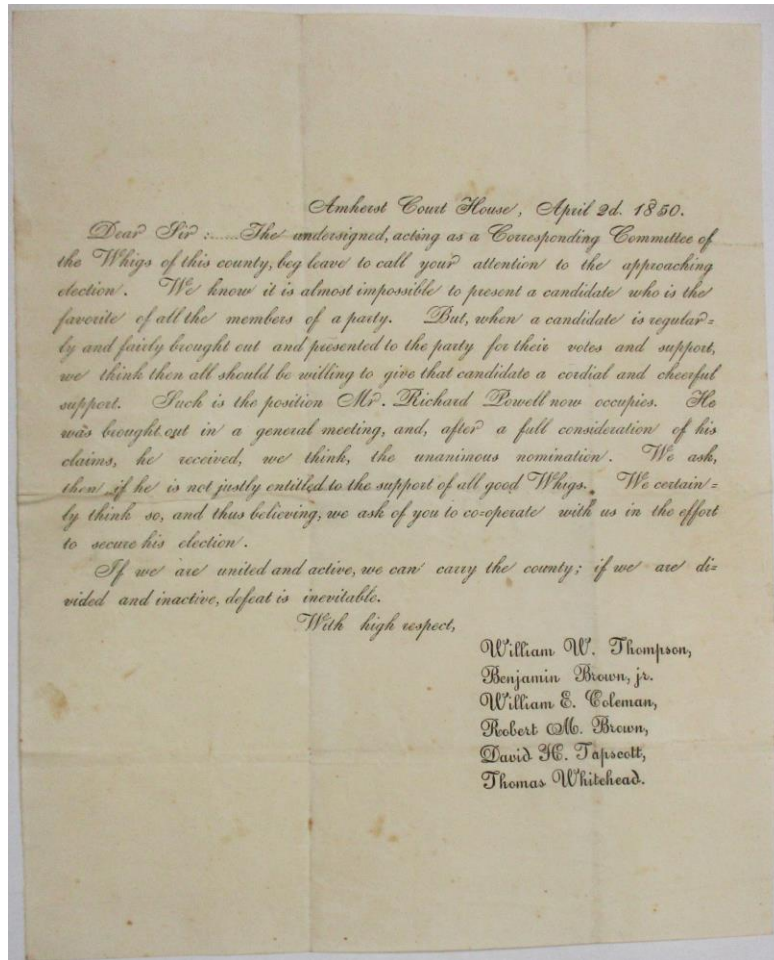 Amherst Court House, April 2d. 1850.
Dear Sir :......The undersigned, acting as a Corresponding Committee of
the Whigs of this county, beg leave to call your attention to the approaching
election. We know it is almost impossible to present a candidate who is the
favorite of all the members of a party. But, when a candidate is regular=
ly and fairly brought out and presented to the party for their votes and support,
we think then all should be willing to give that candidate a cordial and cheerful
support. Such is the position Mr. Richard Powell now occupies. He
was brought out in a general meeting, and, after a full consideration of his
claims, he received, we think, the unanimous nomination. We ask,
then if he is not justly entitled to the support of all good Whigs. We certain=
ly think so, and thus believing, we ask of you to co-operate with us in the effort
to secure his election.
If we are united and active, we can carry the county; if we are di=
vided and inactive, defeat is inevitable.
With high respect,
William W. Thompson,
Benjamin Brown, jr.
William E. Coleman,
Robert M. Brown,
David H. Tapscott,
Thomas Whitehead.